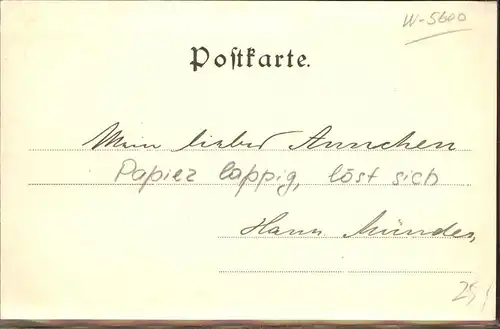 W-5600
Postkarte.
Mein liebes Annchen
Papier lappig, löst sich
Hann. Münden,